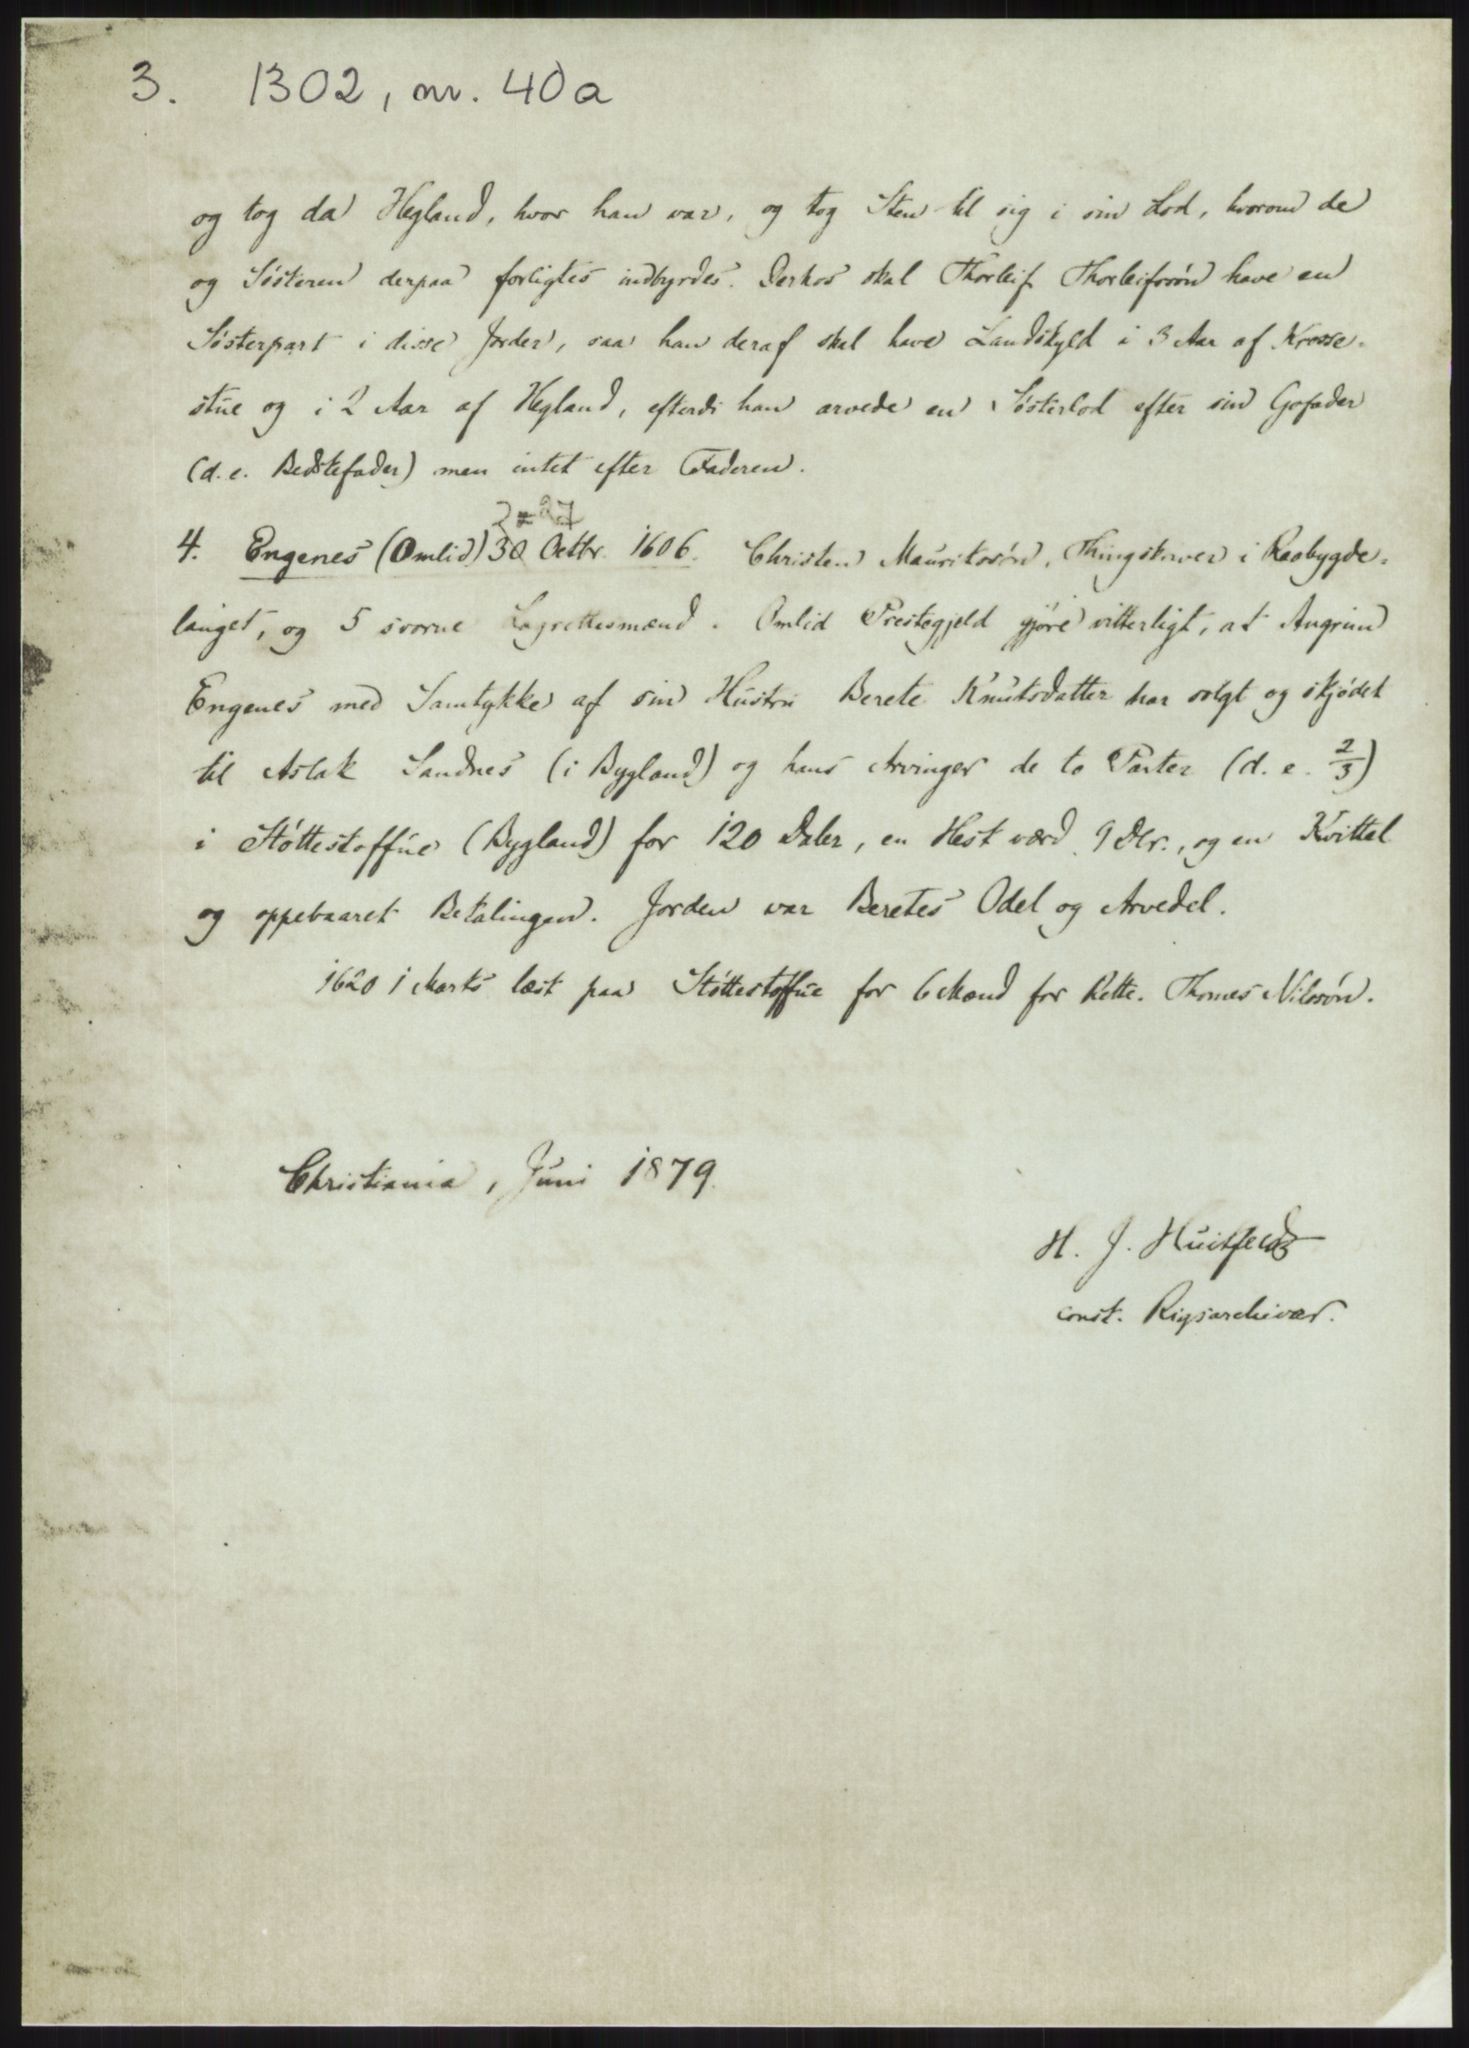 3. 1302, nr. 40a
og tog da Hegland, hvor han var, og tog Sten til sig i sin Lod, hvorom de
og Søsteren derpaa forligtes indbyrdes. Derhos skal Thorleif Thorleifssøn have en
Søsterpart i disse Jorder, saa han deraf skal have Landskyld i 3 Aar af Krosse-
stue og i 2 Aar af Hegland, efterdi han arvede en Søsterlod efter sin Gofader
(d. e. Bedstefader) men intet efter Faderen.
27
4. Engenes (Omlid) 30 Octbr. 1606. Christen Mauritssøn, Thingskriver i Raabygde-
lauget, og 5 svorne Lagrettesmænd i Omlid Prestegjeld gjøre vitterligt, at Angrim
Engenes med Samtykke af sin Hustru Berete Knutsdatter har solgt og skjødet
til Aslak Sandnes (i Bygland) og hans Arvinger de to Parter (d. e. 2/3)
i Støttestoffue (Bygland) for 120 Daler, en Hest værd 9 Dlr., og en Kvittel
og oppebaaret Betalingen. Jorden var Beretes Odel og Arvedel.
1620 1 Marts læst paa Støttestoffue for 6 Mænd for Rette. Thomes Nilssøn.
Christiania, Juni 1879.
H. J. Huitfeldt
const. Rigsarchivar.